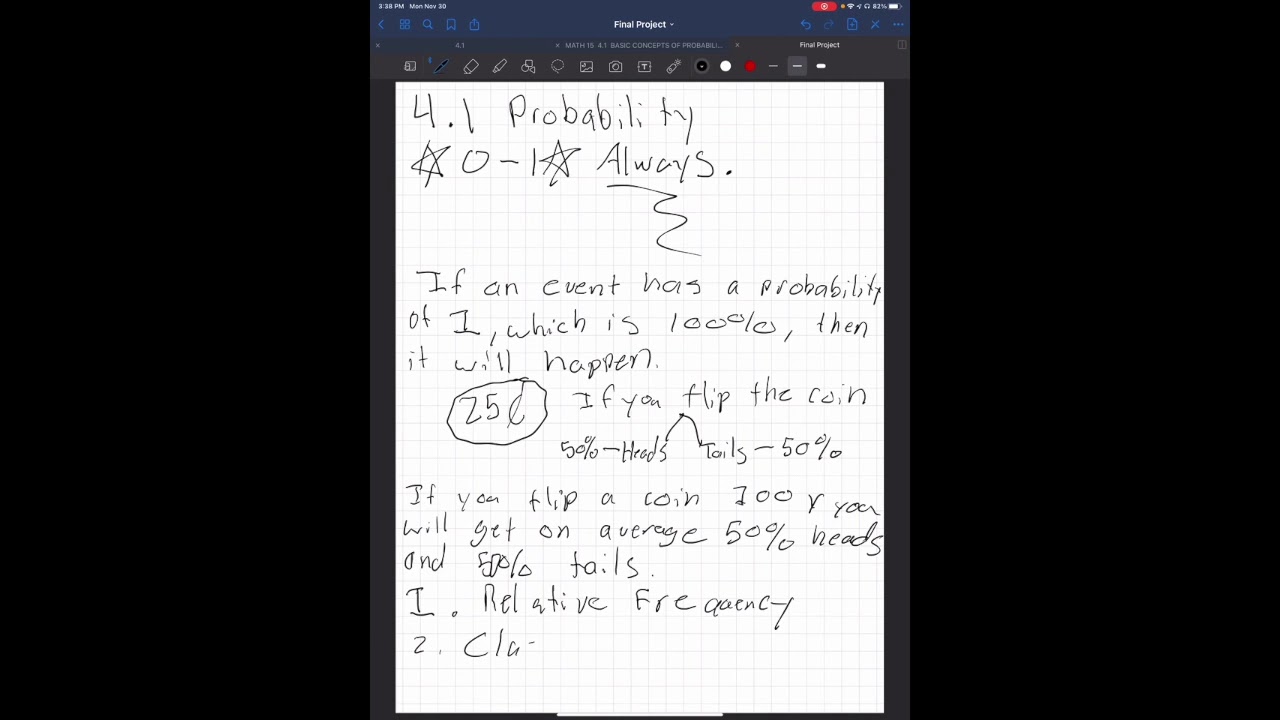 3:38 PM Mon Nov 30
82%
Final Project
4.1
MATH 15 4.1 BASIC CONCEPTS OF PROBABILI...
Final Project
4.1 Probability
☆ 0-1 ☆ Always.
If an event has a probability
of I, which is 100%, then
it will happen.
25¢
If you flip the coin
50%-Heads Tails-50%
If you flip a coin 100 x you
will get on average 50% heads
and 50% tails.
I. Relative Frequency
2. Cla-